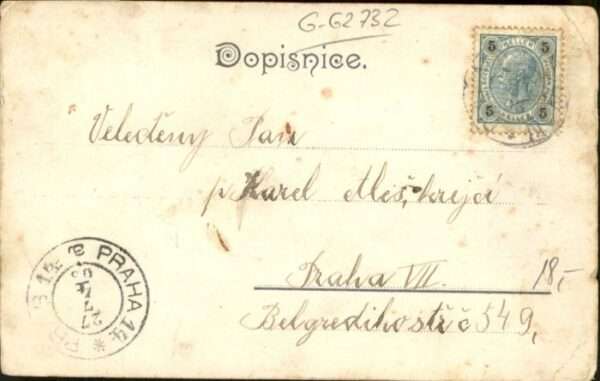 G-62732
Dopisnice.
5 5
HELLER
5 5
Veleděný Pan
p Karel Meškrejcí
Praha VII.
18,-
Belgredihostř č 549,
PRAHA 14